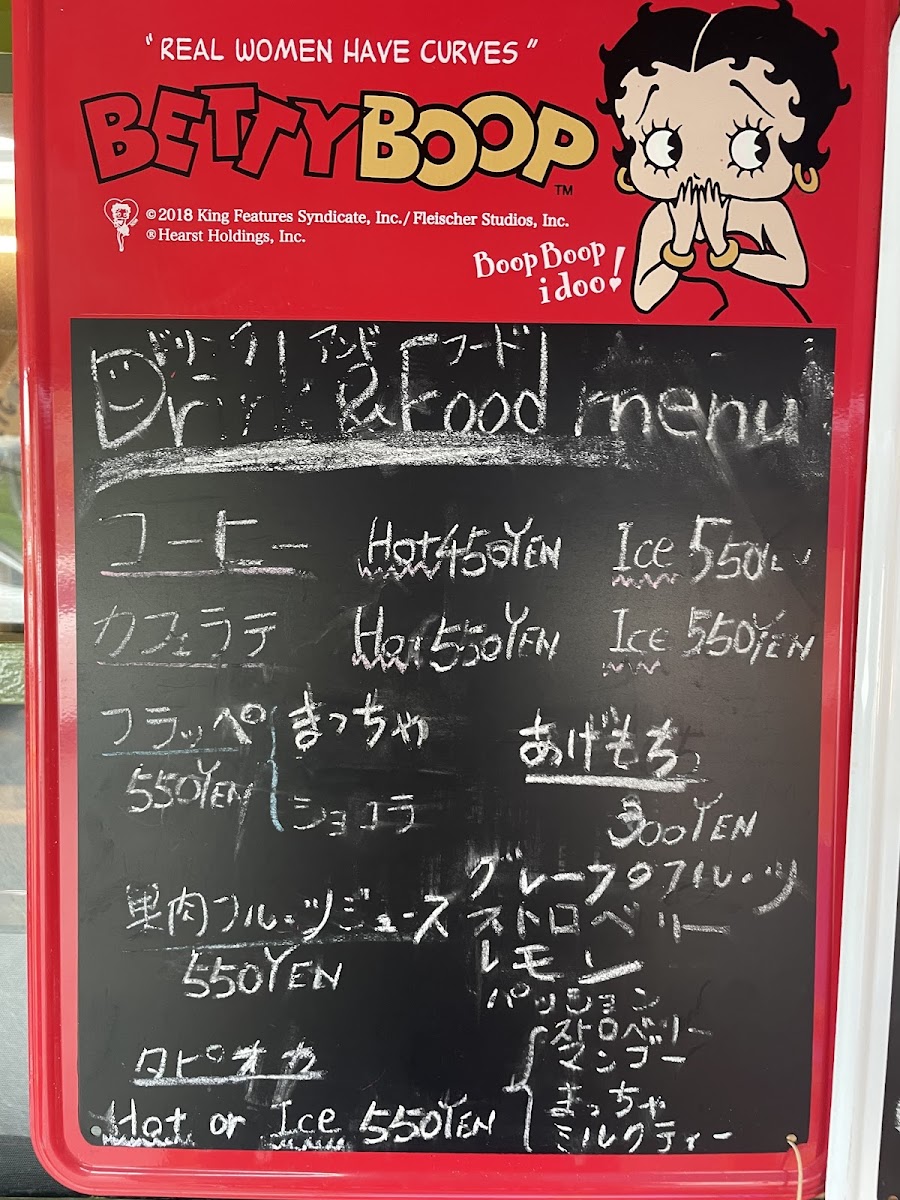 "REAL WOMEN HAVE CURVES"
BETTY BOOP™
©2018 King Features Syndicate, Inc./Fleischer Studios, Inc.
®Hearst Holdings, Inc.
Boop Boop
i doo!
アンド フード
& Food menu
コーヒー Hot 450YEN Ice 550
カフェラテ Hot 550YEN Ice 550YEN
フラッペ まっちゃ
550YEN ショコラ
あげもち
300YEN
果肉フルーツジュース
550YEN
グレープフルーツ
ストロベリー
レモン
パッション
タピオカ
Hot or Ice 550YEN
ストロベリー
マンゴー
まっちゃ
ミルクティー